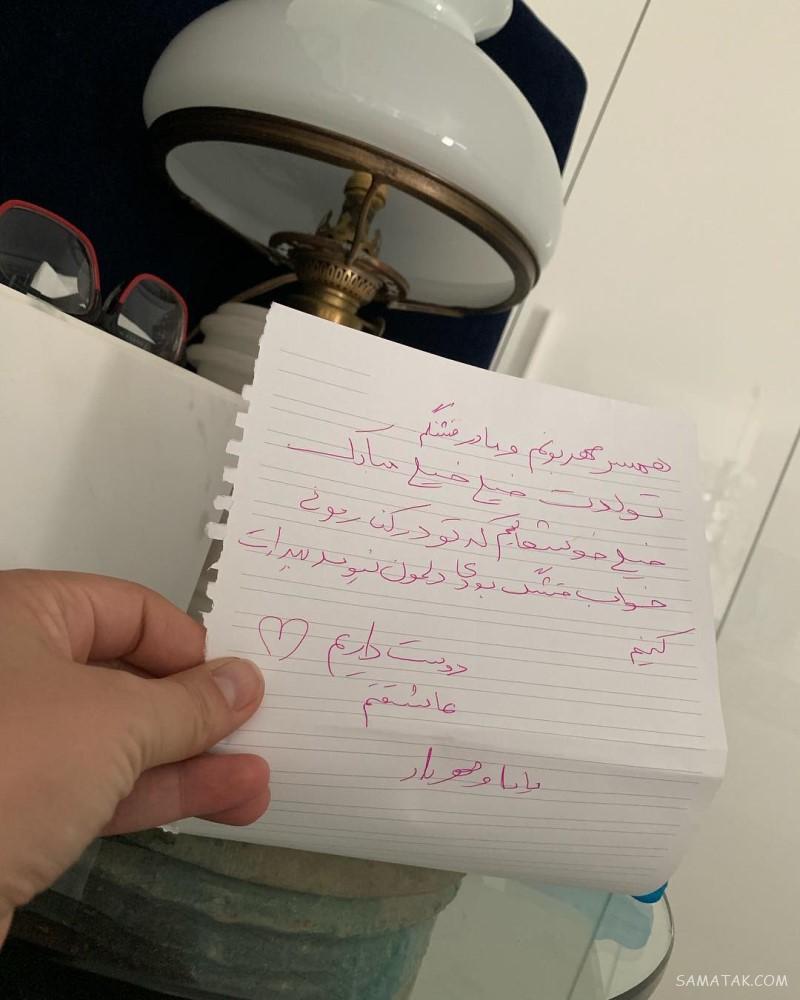 همسر مهربونم و مادر قشنگم
تولدت خیلی خیلی مبارک
خیلی خوشحالیم که تو در کنارمونی
خواب قشنگ بودی دلمون نیومد بیدارت
کنیم
دوست داریم
عاشقتیم
بابا و مهریار
SAMATAK.COM